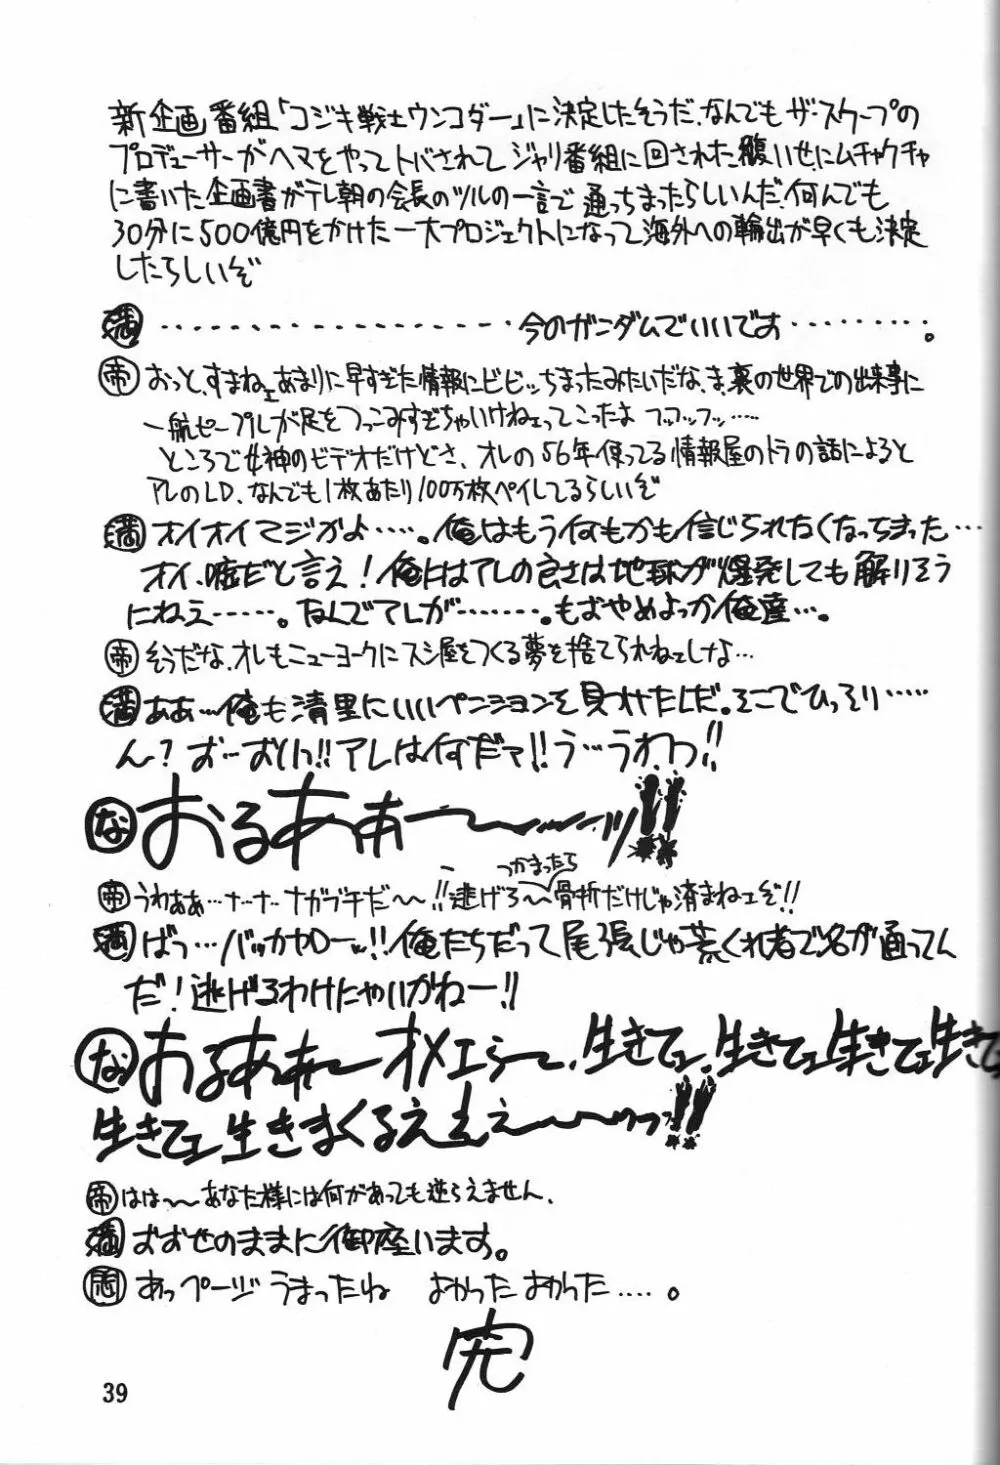 新企画番組「コジキ戦士ウンコダー」に決定したそうだ、なんでもザ・スクープの
プロデューサーがヘマをやってトバされてジャリ番組に回された腹いせにムチャクチャ
に書いた企画書がテレ朝の会長のツルの一言で通っちまったらしいんだ、何んでも
30分に500億円をかけた一大プロジェクトになって海外への輸出が早くも決定
したらしいぞ
満 ・・・・・・・・・・・・・・・・・・・今のガンダムでいいです・・・・・・・・。
帝 おっと、すまねェあまりに早すぎた情報にビビッちまったみたいだな、ま、裏の世界での出来事に
一般ピープルが足をつっこみすぎちゃいけねェってこったよ フッフッフッ……
ところで女神のビデオだけどさ、オレの56年使ってる情報屋のトラの話によると
アレのLD、なんでも1枚あたり100万枚ペイしてるらしいぞ
満 オイオイマジかよ……。俺はもう何もかも信じられなくなっちまった…
オイ、嘘だと言え！俺にはアレの良さは地球が爆発しても解りそう
にねえ……。なんでアレが………。もおやめよっか俺達…。
帝 そうだな、オレもニューヨークにスシ屋をつくる夢を捨てられねェしな…
満 ああ…俺も清里にいいペンションを見つけたしだ。そこでひっそり……
ん？お…おいっ!!アレは何だァ!!う…うわっ!!
な おるあぁ〜〜〜〜ッ!!
帝 うわぁぁ…ナ…ナ…ナガブチだ〜〜!!逃げろ〜つかまったら骨折だけじゃ済まねェぞ!!
満 ばっ…バッカヤローッ!!俺たちだって尾張じゃ荒くれ者で名が通ってん
だ！逃げるわけにゃいかねー!!
な おるあぁ〜オメェら〜、生きてェ、生きてェ生きてェ生きて
生きてェ生きまくるえぇぇ〜〜〜ッ!!
帝 はは〜〜あなた様には何があっても逆らえません、
満 おおせのままに御座います。
あっページうまったね よかったよかった….。
完
39